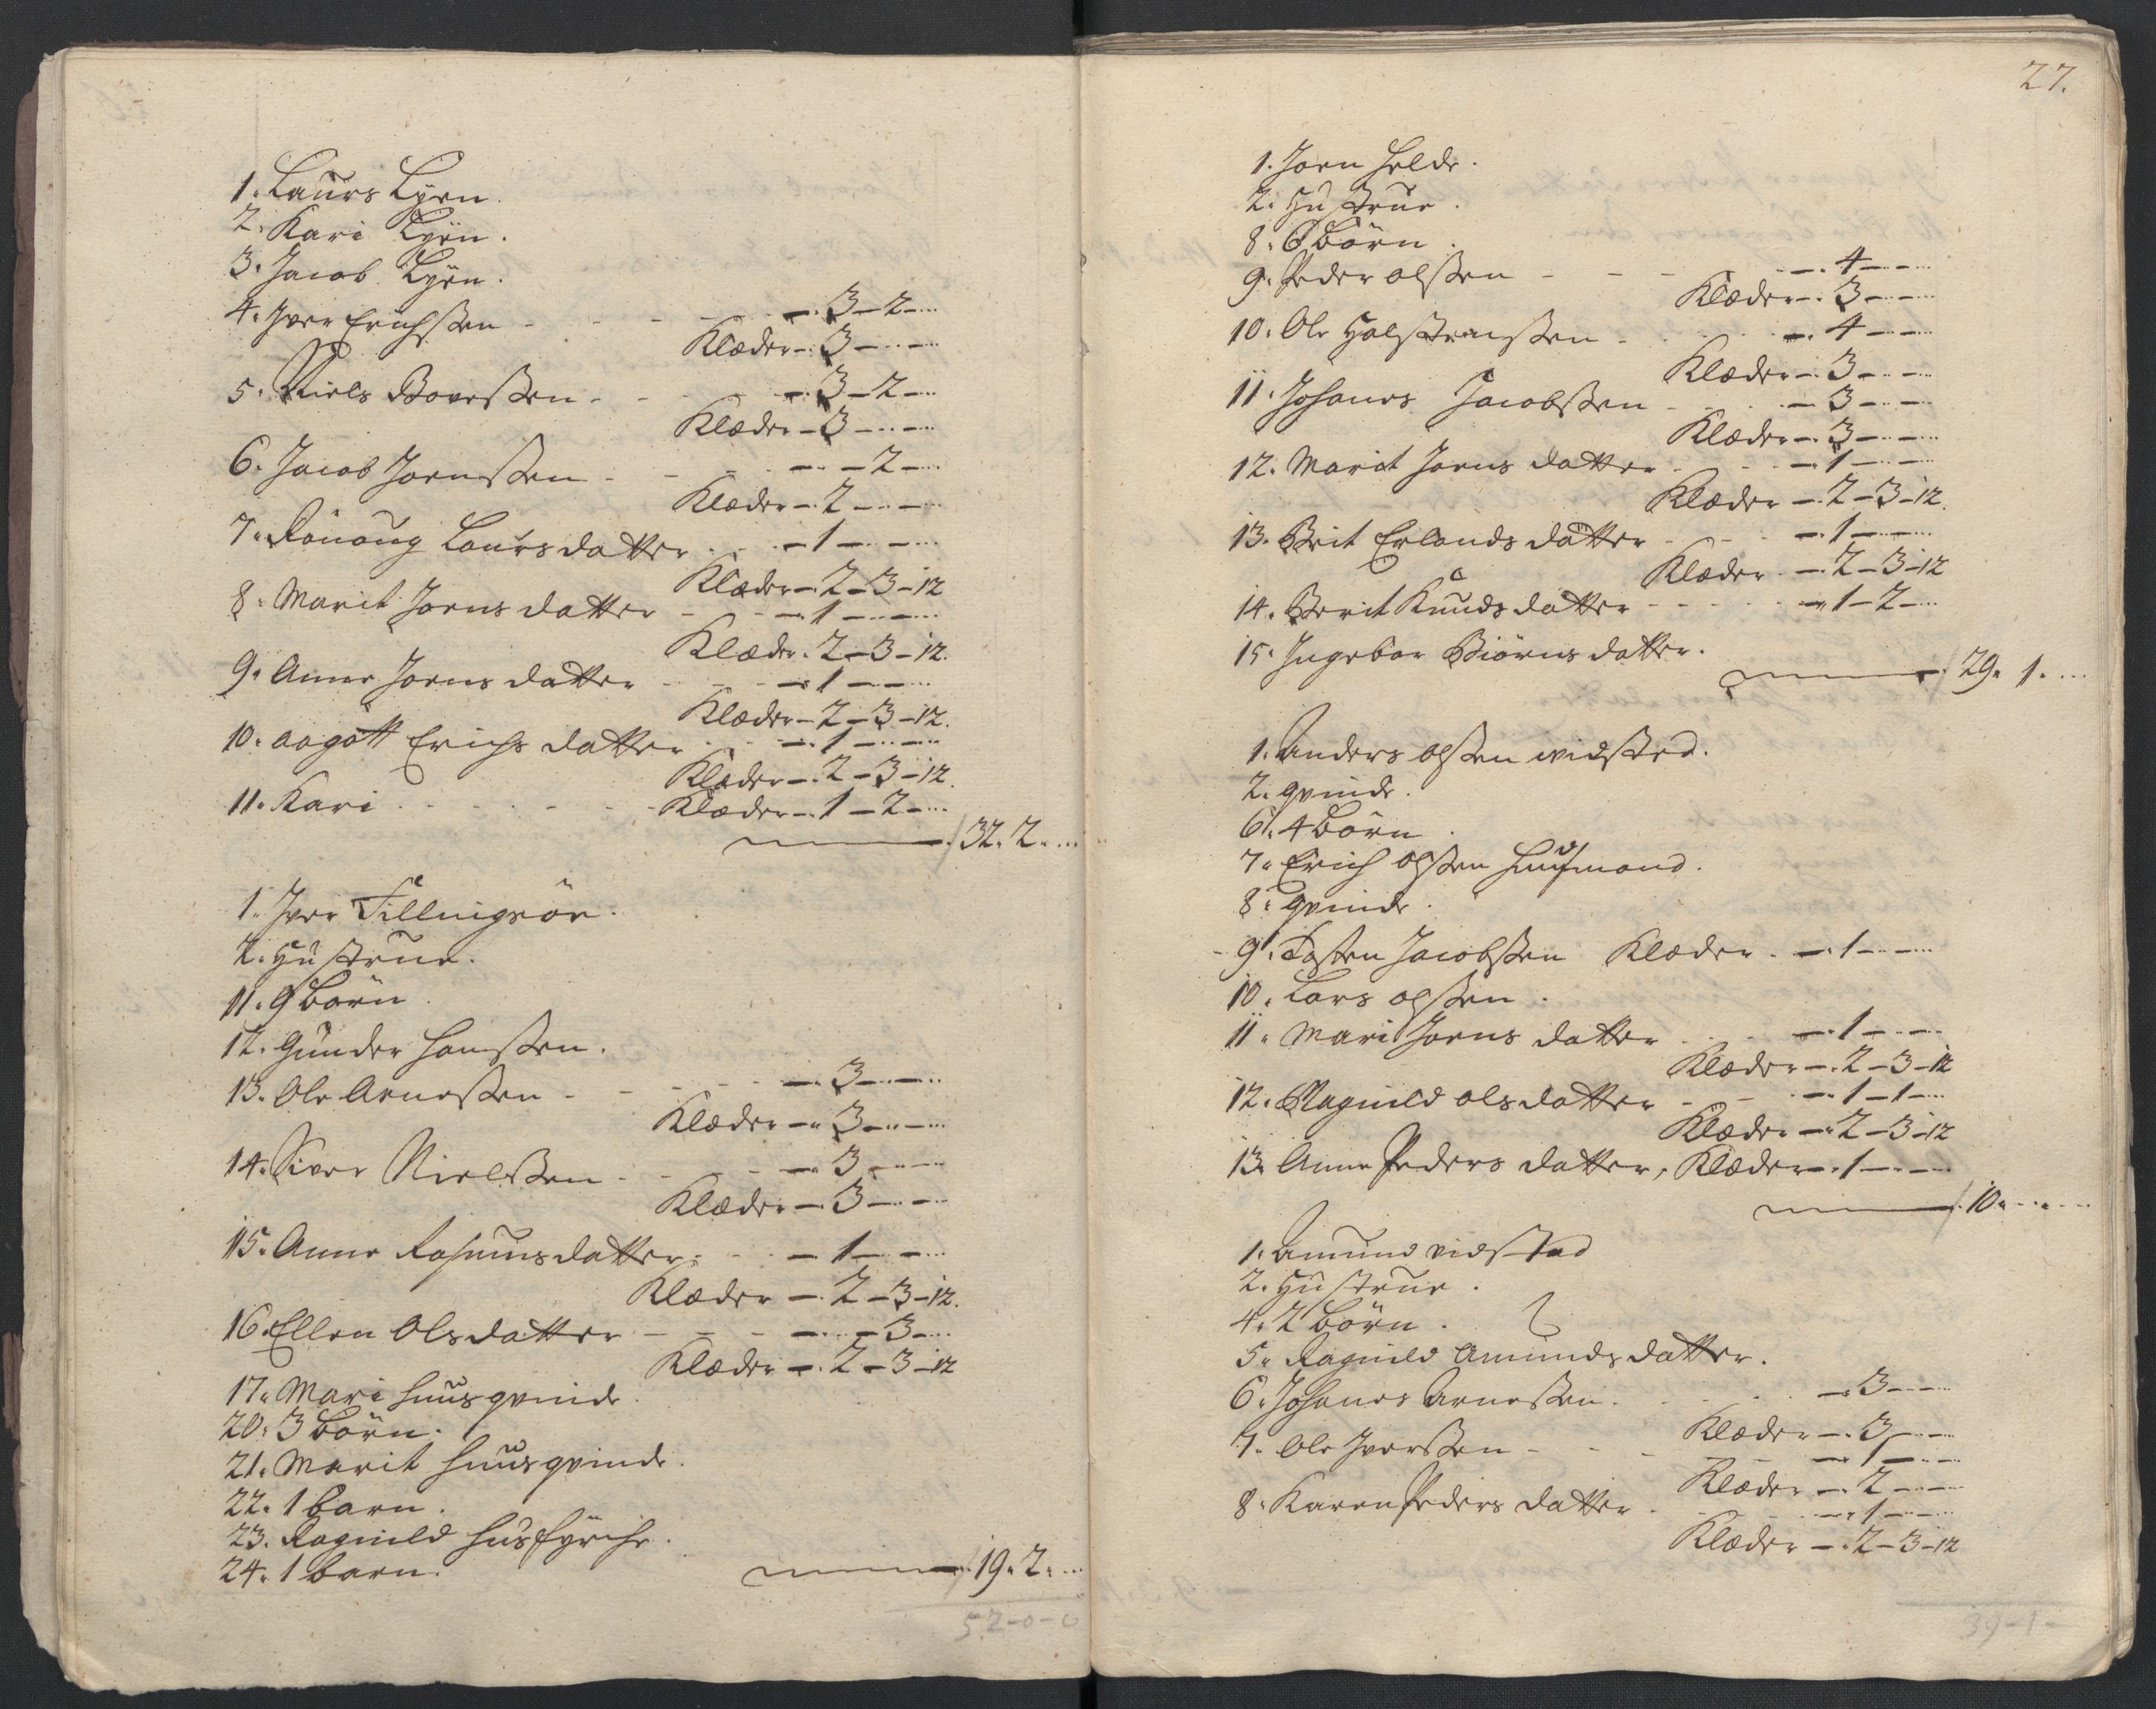 1. Laurs Lyen.
2. Kari Lyen.
3. Jacob Lyen.
4. Iver Erichssen - - - 3 - 2 - ...
Klæder - 3 - ... -
5. Niels Bovessen - - - 3 - 2 - ...
Klæder - 3 - ... -
6. Jacob Joenssen - - - - 2 - ...
Klæder - 2 - ... -
7. Rönoug Laursdatter - 1 - ... -
Klæder - 2 - 3 - 12
8. Marit Joens datter - - 1 - ... -
Klæder. 2 - 3 - 12.
9. Anne Joens datter - - 1 - ... -
Klæder - 2 - 3 - 12.
10. Aagott Erichs datter - 1 - ... -
Klæder - 2 - 3 - 12.
11. Kari - - - - Klæder - 1 - 2 - ...
/32. 2. ...
1. Iver Tillungsöe.
2. Hustrue.
11. 9 Börn.
12. Gunder Hanssen.
13. Ole Arnessen - - - 3 - ... -
Klæder - 3 - ... -
14. Siver Nielssen - - - 3 - ... -
Klæder - 3 - ... -
15. Anne Rasmusdatter - - 1 - ... -
Klæder - 2 - 3 - 12.
16. Ellen Olsdatter - - - - 3 - ...
Klæder - 2 - 3 - 12
17. Mari huusqvinde.
20. 3 Börn.
21. Marit huusqvinde.
22. 1 barn.
23. Ragnild
24. 1 barn.
/19. 2. ...
52-0-0
27.
1. Joen Helde.
2. Hustrue.
8. 6 Börn.
9. Peder olssen - - - 4 - ... -
Klæder - 3 - ... -
10. Ole Halstenssen - - 4 - ... -
Klæder - 3 - ... -
11. Johanes Jacobssen - - 3 - ... -
Klæder - 3 - ... -
12. Marit Joens datter - - 1 - ... -
Klæder - 2 - 3 - 12.
13. Brit Erlands datter - - 1 - ... -
Klæder - 2 - 3 - 12
14. Berit Knuds datter - - - 1 - 2 - ...
15. Ingebor Biörns datter.
/29. 1. ...
1. Anders olssen widsted.
2. qvinde.
6. 4 Börn.
7. Erich olssen huusmand.
8. qvinde.
9. Tosten Jacobssen Klæder. - 1 - ... -
10. Lars olssen.
11. Mari Joens datter - - 1 - ... -
Klæder - 2 - 3 - 12
12. Magnild olsdatter - - 1 - 1 - ...
Klæder - 2 - 3 - 12
13. Anne Peders datter, Klæder - 1 - ... -
/. 10. ...
1. Amund vidsted
2. Hustrue.
4. 2 Börn.
5. Ragnild Amunds datter.
6. Johanes Arnessen. - - 3 - ... -
Klæder - 3 - ... -
7. Ole Iverssen - - - 1 - ... -
Klæder - 2 - ... -
8. Karen Peders datter - - 1 - ... -
Klæder - 2 - 3 - 12
39-1-